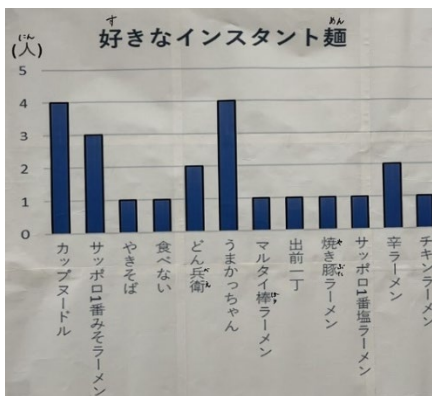 好きなインスタント麺
す
めん
(人)
にん
5
4
3
2
1
0
カップヌードル
サッポロ1番みそラーメン
やきそば
食べない
どん兵衛
べえ
うまかっちゃん
マルタイ棒ラーメン
ぼう
出前一丁
焼き豚ラーメン
や
ぶた
サッポロ1番塩ラーメン
辛ラーメン
チキンラーメン